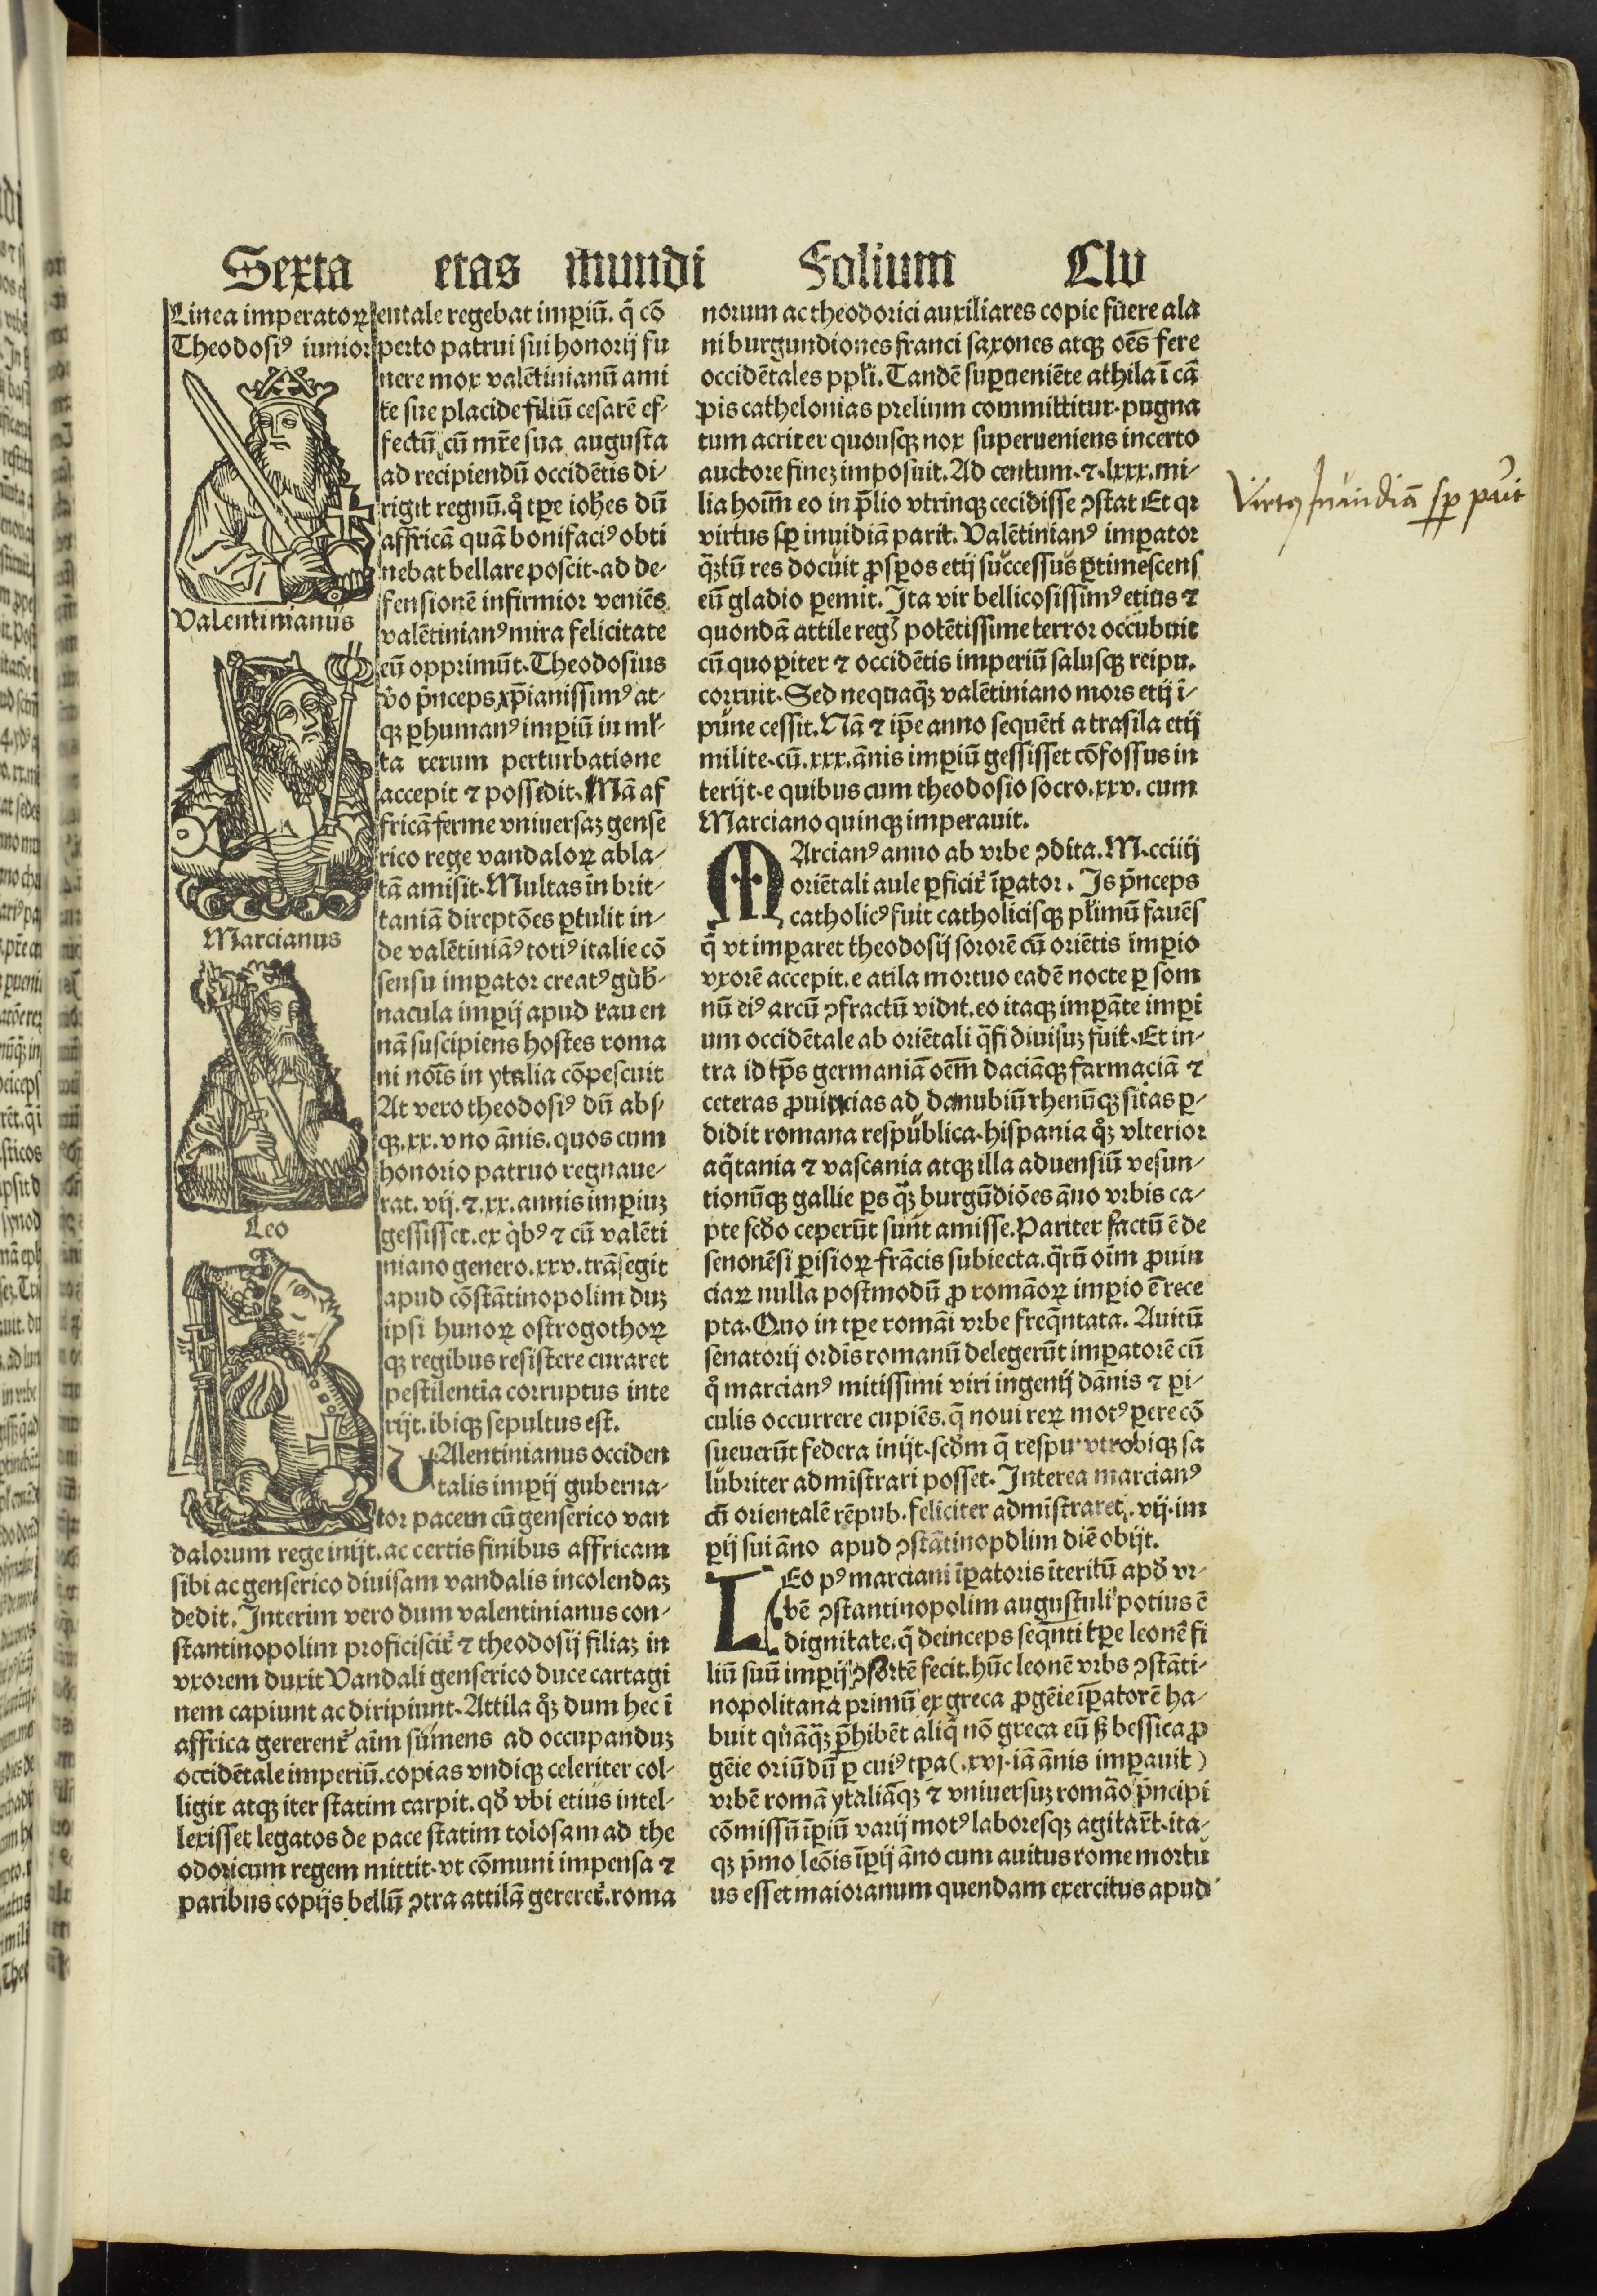 Sexta etas mundi Folium Clv
Linea imperatoꝝ
Theodosiꝰ iunior
Valentinianus
Marcianus
Leo
entale regebat imꝑiũ. q̃ cõ
perto patrui sui honorij fu
nere mox valẽtinianũ ami
te sue placide filiũ cesarẽ ef-
fectũ cũ mr̃e sua augusta
ad recipiendũ occidẽtis di-
rigit regnũ. q̊ tꝑe ioh̃es dũ
affricã quã bonifaciꝰ obti
nebat bellare poscit. ad de-
fensionẽ infirmior veniẽs
valẽtinianꝰ mira felicitate
eũ opprimũt. Theodosius
v̊o pñceps xp̃ianissimꝰ at-
qꝫ ꝑhumanꝰ imꝑiũ in ml̃-
ta rerum perturbatione
accepit ⁊ possedit. Nã af
fricã ferme vniuersaꝫ gense
rico rege vandaloꝝ abla-
tã amisit. Multas in brit-
taniã direptões ꝑtulit in-
de valẽtiniãꝰ totiꝰ italie cõ
sensu imꝑator creatꝰ gub̃-
nacula imꝑij apud rauen
nã suscipiens hostes roma
ni noĩs in ytalia cõpescuit
At vero theodosiꝰ dũ abs-
qꝫ .xx. vno ãnis. quos cum
honorio patruo regnaue-
rat. vij. ⁊ .xx. annis imꝑiuꝫ
gessisset. ex q̇bꝰ ⁊ cũ valẽti
niano genero .xxv. trãsegit
apud cõstãtinopolim duꝫ
ipsi hunoꝝ ostrogothoꝝ
qꝫ regibus resistere curaret
pestilentia corruptus inte
rijt. ibiqꝫ sepultus est.
VAlentinianus occiden
talis imꝑij guberna-
tor pacem cũ genserico van
dalorum rege inijt. ac certis finibus affricam
sibi ac genserico diuisam vandalis incolendaꝫ
dedit. Interim vero dum valentinianus con-
stantinopolim proficiscit᷑ ⁊ theodosij filiaꝫ in
vxorem duxit Vandali genserico duce cartagi
nem capiunt ac diripiunt. Attila q̊ꝫ dum hec ĩ
affrica gererent᷑ aĩm sumens ad occupanduꝫ
occidẽtale imperiũ. copias vndiqꝫ celeriter col-
ligit atqꝫ iter statim carpit. qđ vbi etius intel-
lexisset legatos de pace statim tolosam ad the
odoricum regem mittit. vt cõmuni impensa ⁊
paribus copijs bellũ ↄtra attilã gereret᷑. roma
norum ac theodorici auxiliares copie fuere ala
ni burgundiones franci saxones atqꝫ oẽs fere
occidẽtales ppl̃i. Tandẽ suꝑueniẽte athila ĩ cã
pis cathelonias prelium committitur. pugna
tum acriter quousqꝫ nox superueniens incerto
auctore fineꝫ imposuit. Ad centum. ⁊ .lxxx. mi-
lia hoĩm eo in p̃lio vtrinqꝫ cecidisse ↄstat Et qꝛ
virtus sꝑ inuidiã parit. Valẽtinianꝰ imꝑator
q̃ꝫtũ res docuit ꝓsꝑos etij successus ꝑtimescens
eũ gladio ꝑemit. Ita vir bellicosissimꝰ etius ⁊
quondã attile reg̃ potẽtissime terror occubuit
cũ quo ꝑiter ⁊ occidẽtis imperiũ salusqꝫ reipu.
corruit. Sed nequaq̃ꝫ valẽtiniano mors etij ĩ-
pune cessit. Nã ⁊ ip̃e anno sequẽti a trasila etij
milite. cũ .xxx. ãnis imꝑiũ gessisset cõfossus in
terijt. e quibus cum theodosio socro .xxv. cum
Marciano quinqꝫ imperauit.
MArcianꝰ anno ab vrbe ↄdita. M.cciiij
oriẽtali aule ꝑficit᷑ ĩꝑator. Is pñceps
catholicꝰ fuit catholicisqꝫ pl̃imũ fauẽs
q̃ vt imꝑaret theodosij sororẽ cũ oriẽtis imꝑio
vxorẽ accepit. e atila mortuo eadẽ nocte ꝑ som
nũ eiꝰ arcũ ↄfractũ vidit. eo itaqꝫ imꝑãte imꝑi
um occidẽtale ab oriẽtali q̃si diuisuꝫ fuit. Et in-
tra id tꝑs germaniã oẽm daciãqꝫ sarmaciã ⁊
ceteras ꝓuincias ad danubiũ rhenũqꝫ sitas ꝑ-
didit romana respublica. hispania q̊ꝫ vlterior
aq̃tania ⁊ vascania atqꝫ illa aduensiũ vesun-
tionũqꝫ gallie ꝑs q̃ꝫ burgũdiões ãno vrbis ca-
pte scđo ceperũt sunt amisse. Pariter factũ ẽ de
senonẽsi ꝑisioꝝ frãcis subiecta. q̃rũ oĩm ꝓuin
ciaꝝ nulla postmodũ ꝓ romãoꝝ imꝑio ẽ rece
pta. Quo in tꝑe romãi vrbe freq̃ntata. Auitũ
senatorij ordĩs romanũ delegerũt imꝑatorẽ cũ
q̊ marcianꝰ mitissimi viri ingenij dãnis ⁊ ꝑi-
culis occurrere cupiẽs. q̃ noui reꝝ motꝰ ꝑere cõ
sueuerũt federa inijt. scđm q̃ respu. vtrobiqꝫ sa
lubriter admĩstrari posset. Interea marcianꝰ
cũ orientalẽ rẽpub. feliciter admĩstraret. vij. im
ꝑij sui ãno apud ↄstãtinopolim diẽ obijt.
LEo pꝰ marciani ĩꝑatoris ĩteritũ apđ vr-
bẽ ↄstantinopolim augustuli potius ẽ
dignitate. q̃ deinceps seq̃nti tꝑe leonẽ fi
liũ suũ imꝑij ↄsortẽ fecit. hũc leonẽ vrbs ↄstãti-
nopolitana primũ ex greca ꝓgẽie ĩꝑatorẽ ha-
buit quãq̃ꝫ p̃hibẽt aliq̃ nõ greca eũ sꝫ bessica ꝓ
gẽie oriũdũ ꝑ cuiꝰ tꝑa (.xvj. iã ãnis imꝑauit)
vrbẽ romã ytaliãqꝫ ⁊ vniuersuꝫ romão pñcipi
cõmissũ ĩꝑiũ varij motꝰ laboresqꝫ agitar̃t. ita-
qꝫ p̃mo leõis ĩꝑij ãno cum auitus rome mortu
us esset maioranum quendam exercitus apud
Virtꝰ Inuidiã sꝑ